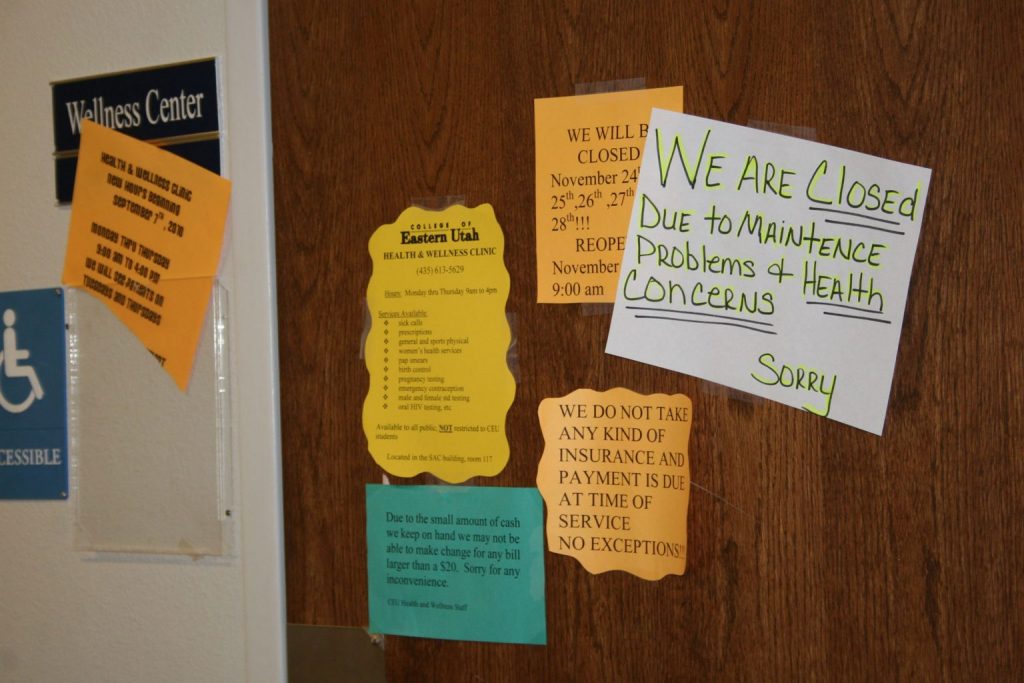 Wellness Center
HEALTH & WELLNESS CLINIC
NEW HOURS BEGINNING
SEPTEMBER 7TH, 2010
MONDAY THRU THURSDAY
9:00 AM TO 4:00 PM
WE WILL SEE PATIENTS ON
TUESDAYS AND THURSDAYS
CESSIBLE
COLLEGE OF
Eastern Utah
HEALTH & WELLNESS CLINIC
(435) 613-5629
Hours: Monday thru Thursday 9am to 4pm
Services Available:
❖ sick calls
❖ prescriptions
❖ general and sports physical
❖ women's health services
❖ pap smears
❖ birth control
❖ pregnancy testing
❖ emergency contraception
❖ male and female std testing
❖ oral HIV testing, etc
Available to all public, NOT restricted to CEU
students
Located in the SAC building, room 117
Due to the small amount of cash
we keep on hand we may not be
able to make change for any bill
larger than a $20. Sorry for any
inconvenience.
CEU Health and Wellness Staff
WE WILL B
CLOSED
November 24th
25th,26th ,27th
28th!!!
REOPE
November
9:00 am
WE ARE CLOSED
DUE to MAINTENCE
PROBLEMS & HEALTH
CONCERNS
SORRY
WE DO NOT TAKE
ANY KIND OF
INSURANCE AND
PAYMENT IS DUE
AT TIME OF
SERVICE
NO EXCEPTIONS!!!